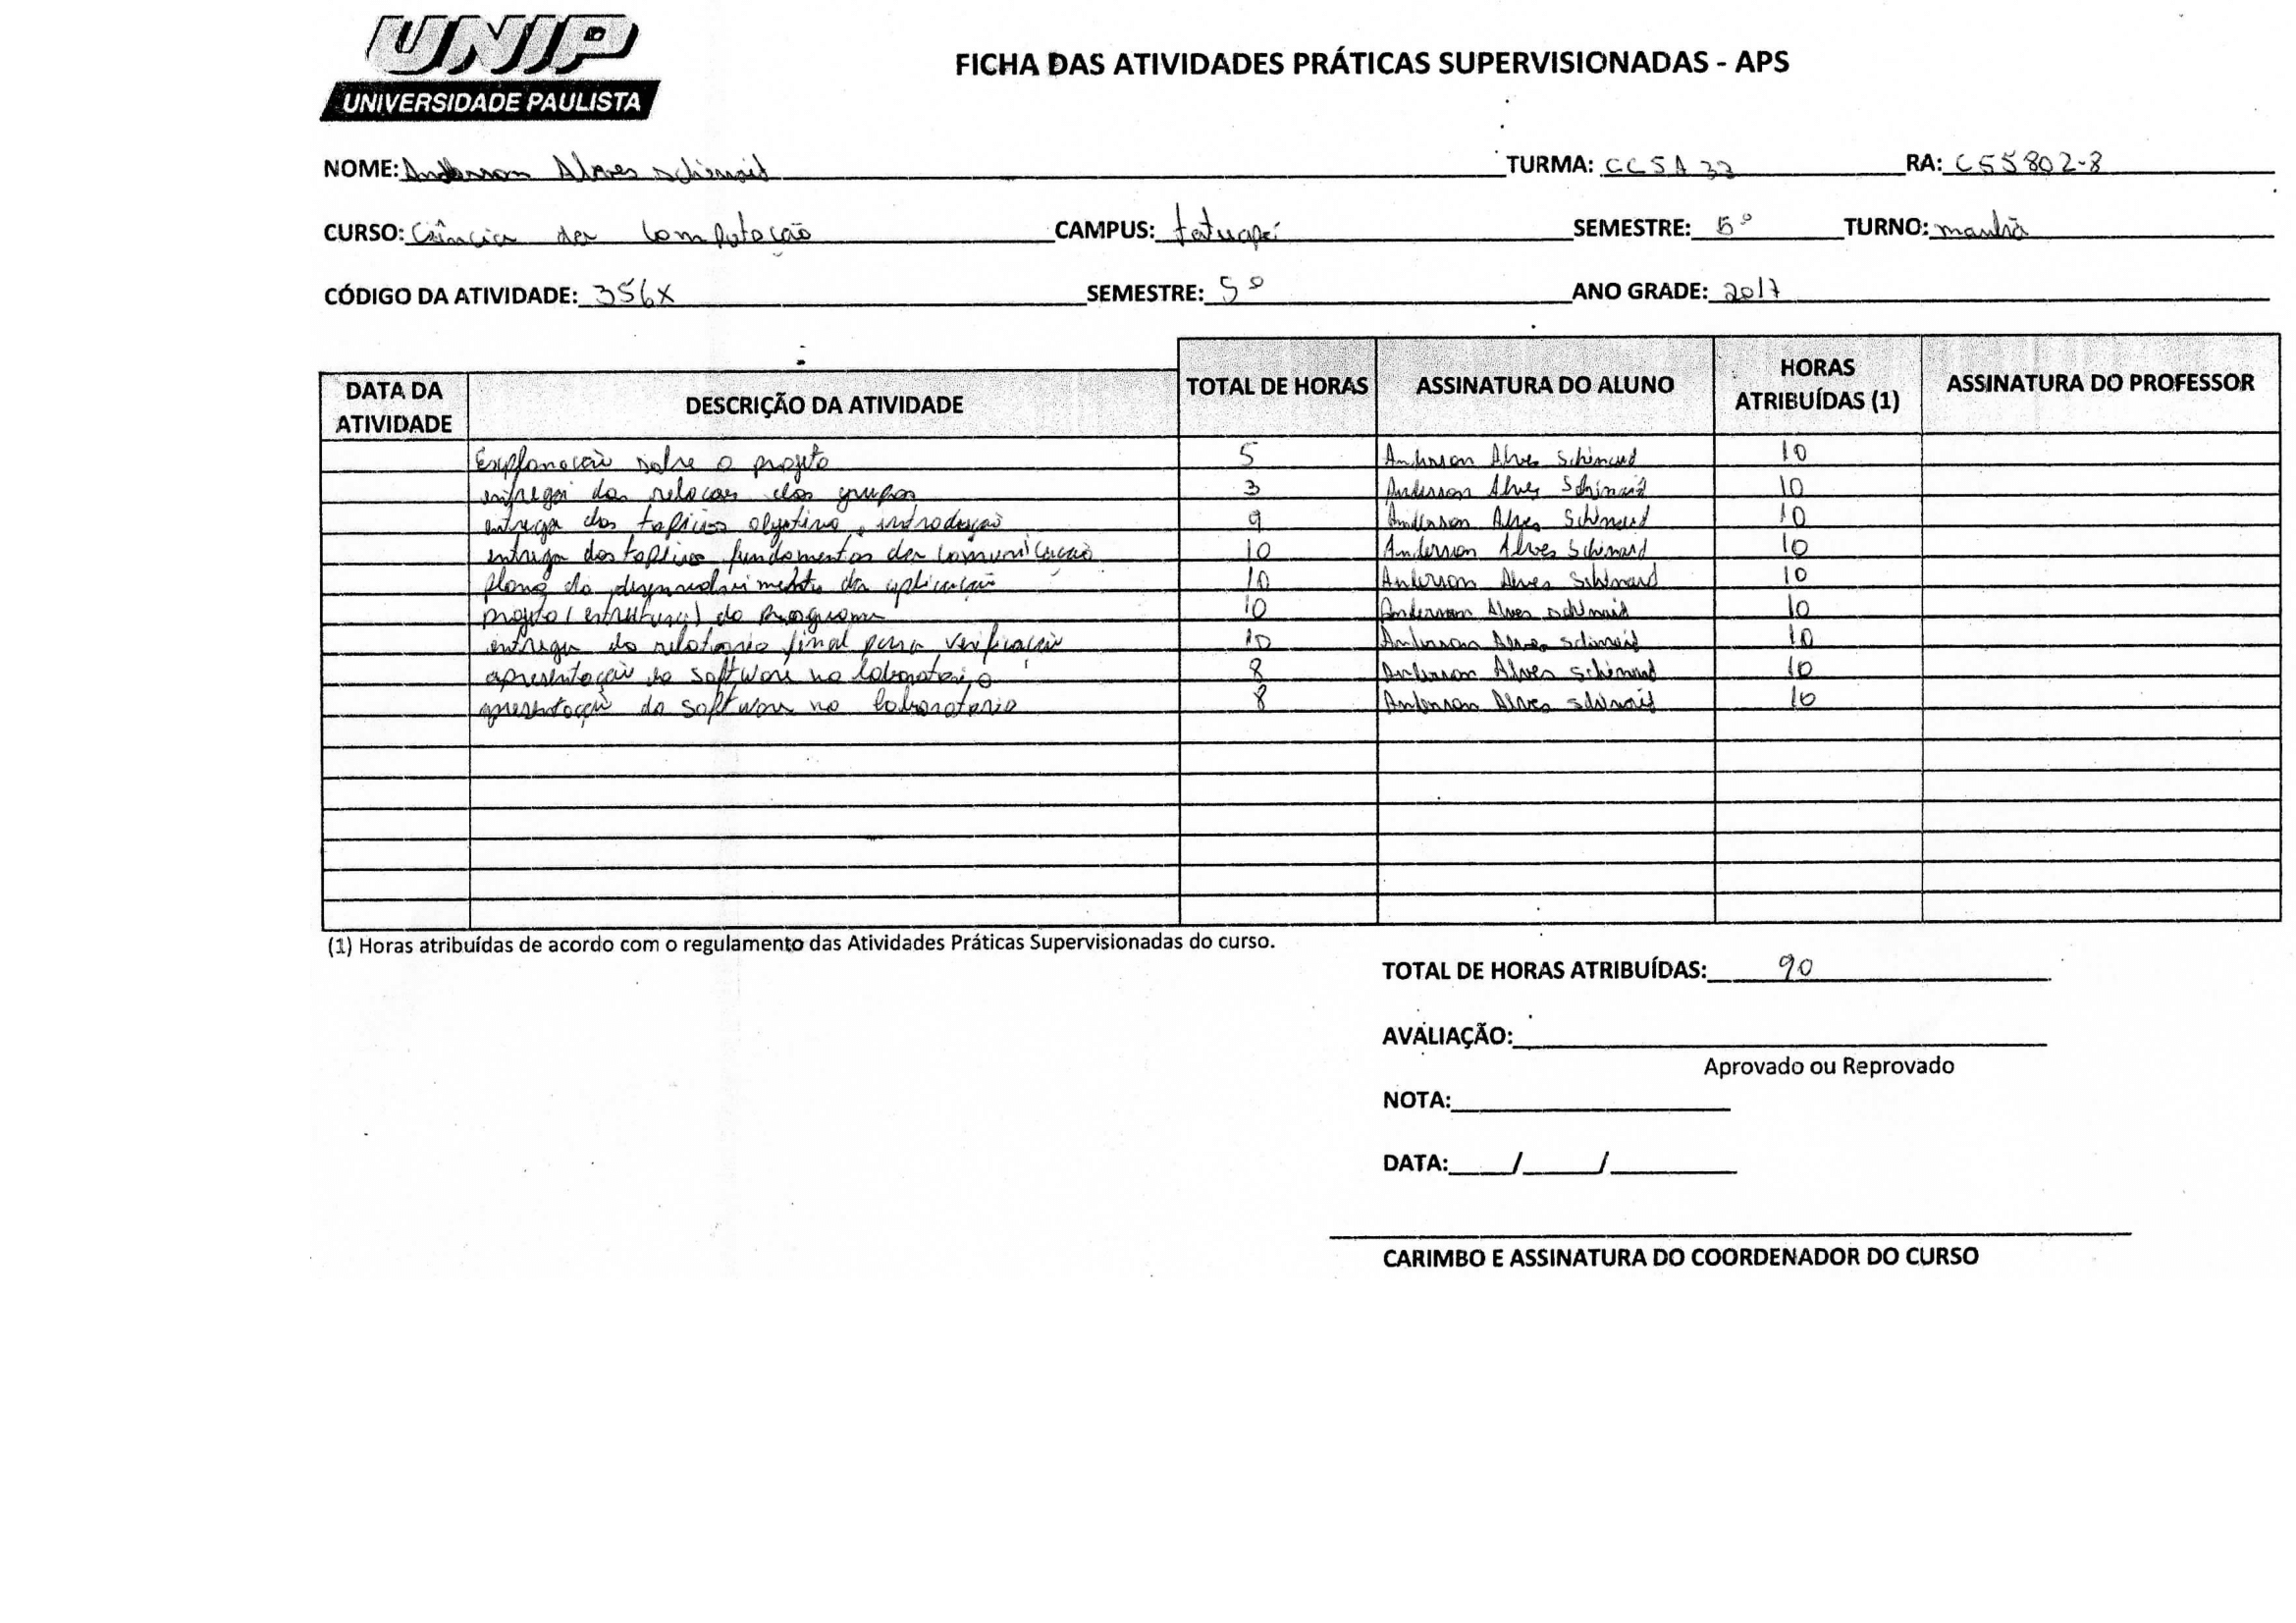 UNIP
UNIVERSIDADE PAULISTA
FICHA DAS ATIVIDADES PRÁTICAS SUPERVISIONADAS - APS
NOME: Anderson Alves Schimaid TURMA: CC5A33 RA: C55802-8
CURSO: Ciência da Computação CAMPUS: tatuapé SEMESTRE: 5º TURNO: manhã
CÓDIGO DA ATIVIDADE: 356X SEMESTRE: 5º ANO GRADE: 2017
DATA DA ATIVIDADE DESCRIÇÃO DA ATIVIDADE TOTAL DE HORAS ASSINATURA DO ALUNO HORAS ATRIBUÍDAS (1) ASSINATURA DO PROFESSOR
Explanação sobre o projeto 5 Anderson Alves Schimaid 10
entrega das relacoes dos grupos 3 Anderson Alves Schimaid 10
entrega dos topicos objetivo, introdução 9 Anderson Alves Schimaid 10
entrega dos topicos fundamentos da comunicacao 10 Anderson Alves Schimaid 10
plano do desenvolvimento da aplicação 10 Anderson Alves Schimaid 10
projeto (estrutura) do Programa 10 Anderson Alves schimaid 10
entrega do relatorio final para verificação 10 Anderson Alves schimaid 10
apresentação do software no laboratorio 8 Anderson Alves schimaid 10
apresentação do software no laboratorio 8 Anderson Alves schimaid 10
(1) Horas atribuídas de acordo com o regulamento das Atividades Práticas Supervisionadas do curso.
TOTAL DE HORAS ATRIBUÍDAS: 90
AVALIAÇÃO:
Aprovado ou Reprovado
NOTA:
DATA: / /
CARIMBO E ASSINATURA DO COORDENADOR DO CURSO